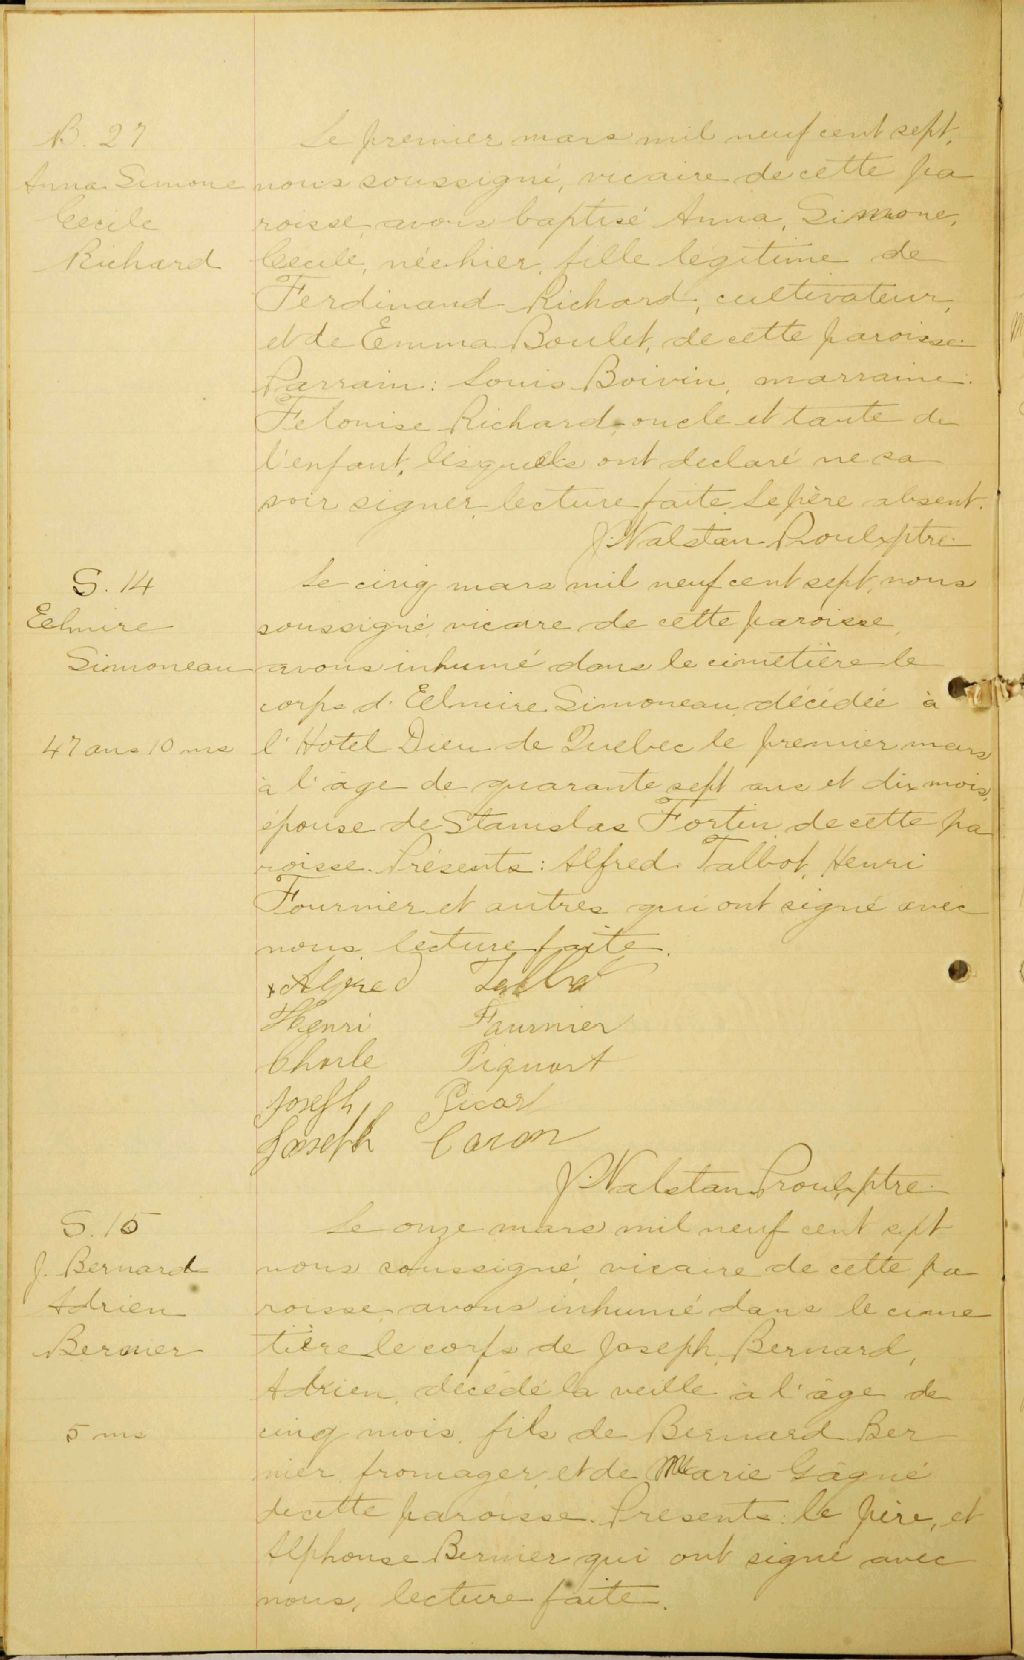 B. 27
Anna Simone
Cecile
Richard
Le premier mars mil neuf cent sept,
nous soussigné, vicaire de cette pa
roisse avons baptisé Anna, Simone,
Cecile, née hier, fille légitime de
Ferdinand Richard, cultivateur,
et de Emma Boulet, de cette paroisse.
Parrain: Louis Boivin, marraine:
Felonise Richard, oncle et tante de
l'enfant, lesquels ont declaré ne sa
voir signer, lecture faite. Le père absent.
J. Nalstan Proulx ptre.
S. 14
Eelmire
Simoneau
47 ans 10 ms
Le cinq mars mil neuf cent sept, nous
soussigné vicaire de cette paroisse,
avons inhumé dans le cimetière le
corps d' Eelmire Simoneau, décédée à
l'Hotel Dieu de Quebec le premier mars
à l'âge de quarante sept ans et dix mois,
epouse de Stanislas Fortin, de cette pa
roisse. Présents: Alfred Talbot, Henri
Fournier et autres qui ont signé avec
nous, lecture faite.
x Alfred Talbot
Henri Faurnier
Charle Piquart
Joseph Picard
Joseph Caron
J. Nalstan Proulx ptre.
S. 15
J. Bernard
Adrien
Bernier
5 ms
Le onze mars mil neuf cent sept
nous soussigné, vicaire de cette pa
roisse, avons inhumé dans le cime
tière le corps de Joseph, Bernard,
Adrien, décédé la veille à l'âge de
cinq mois, fils de Bernard Ber
nier, fromager, et de Marie Gâgné
de cette paroisse. Presents: le père, et
Alphonse Bernier qui ont signé avec
nous, lecture faite.